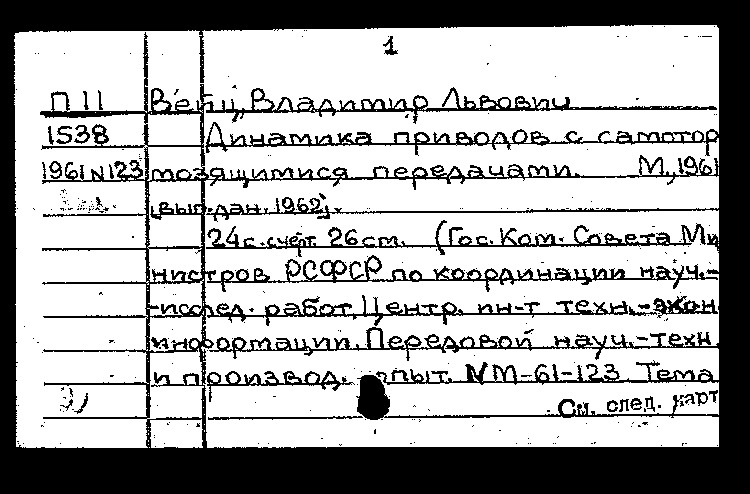 1
П 11 Вейц, Владимир Львович
1538 Динамика приводов с самотор
1961 N 123 мозящимися передачами. М., 1961
[вып. дан. 1962].
24 с. с черт. 26 см. (Гос. Ком. Совета Ми
нистров РСФСР по координации науч.-
-исслед. работ, Центр. ин-т техн.-экон
информации. Передовой науч.-техн.
и производ. опыт. N М-61-123 Тема
См. след. карт